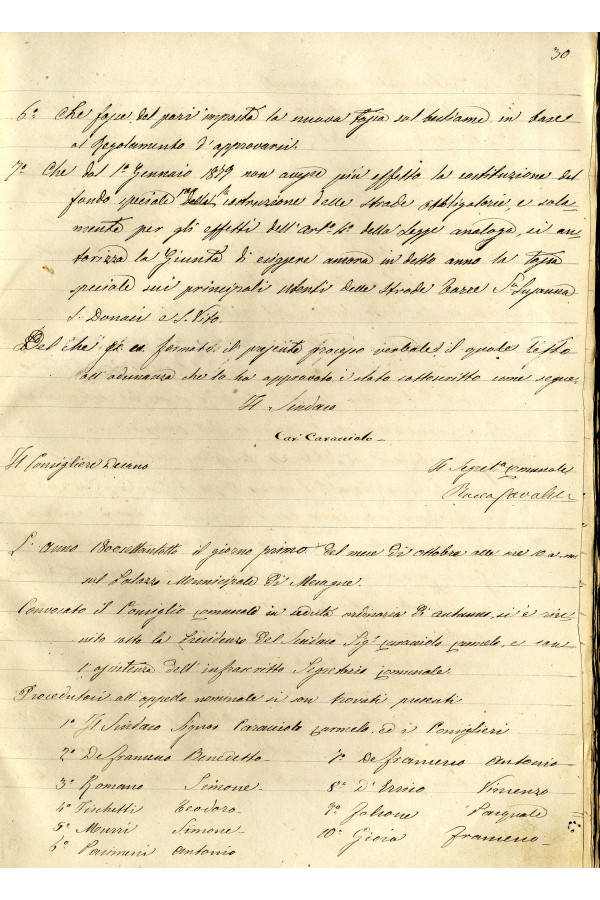 30
6º Che fosse del pari imposta la nuova tassa sul bestiame in base
al Regolamento d'approvarsi.
7º Che dal 1º Gennaio 1879 non avesse più effetto la costituzione del
fondo speciale della costruzione delle strade obbligatorie, e sola-
mente per gli effetti dell'Artº 4º della Legge analoga, si au-
torizza la Giunta di esiggere ancora in detto anno la tassa
speciale sui principali utenti delle strade Torre Sª Susanna
S. Donaci e S. Vito.
Del che si è formato il presente processo verbale il quale letto
all'adunanza che lo ha approvato è stato sottoscritto come segue.
Il Sindaco
Cav. Caracciolo
Il Consigliere Decano
Il Segretº Comunale
Rocco Cavaliere
L'Anno 1800settantotto il giorno primo del mese di Ottobre alle ore 10 a.m.
sul Palazzo Municipale di Mesagne.
Convocato il Consiglio Comunale in seduta ordinaria di autunno, si è riu-
nito sotto la Presidenza del Sindaco Sigr Caracciolo Carmelo, e con
l'assistenza dell'infrascritto Segretario Comunale.
Procedutosi all'appello nominale si son trovati presenti
1º Il Sindaco Signor Caracciolo Carmelo, ed i Consiglieri
2º Defrancesco Benedetto
7º Defrancesco Antonio
3º Romano Simone
8º D'Errico Vincenzo
4º Fischetti Teodoro
9º Falcone Pasquale
5º Murri Simone
10º Gioia Francesco
6º Antonio